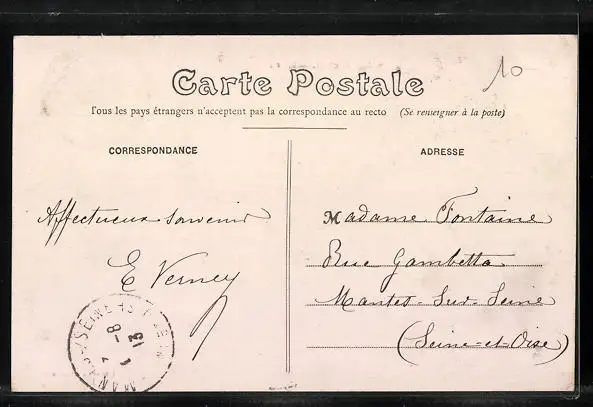 Carte Postale
10
Tous les pays étrangers n'acceptent pas la correspondance au recto (Se renseigner à la poste)
CORRESPONDANCE
Affectueux souvenir
E Verney
ADRESSE
Madame Fontaine
Rue Gambetta
Mantes-Sur-Seine
(Seine-et-Oise)